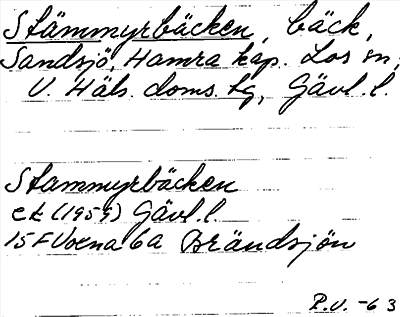 Stämmyrbäcken, bäck,
Sandsjö, Hamra kap. Los sn,
V. Häls. doms. tg, Gävl. l.
Stammyrbäcken
ek (1959) Gävl. l.
15F Voxna 6a Brändsjön
P.V. -63